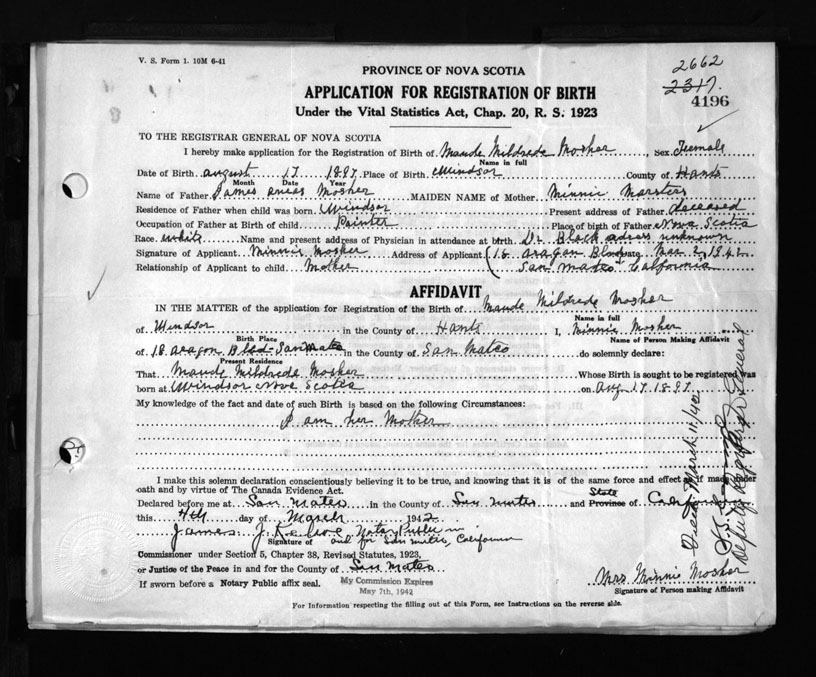 V. S. Form 1. 10M 6-41
2662
2317.
4196
PROVINCE OF NOVA SCOTIA
APPLICATION FOR REGISTRATION OF BIRTH
Under the Vital Statistics Act, Chap. 20, R. S. 1923
TO THE REGISTRAR GENERAL OF NOVA SCOTIA
I hereby make application for the Registration of Birth of Maude Mildrede Mosher Sex Female
Name in full
Date of Birth August 17 1897 Place of Birth Windsor County of Hants
Month Date Year
Name of Father James Mosher MAIDEN NAME of Mother Minnie Marsters
Residence of Father when child was born Windsor Present address of Father deceased
Occupation of Father at Birth of child Painter Place of birth of Father Nova Scotia
Race white Name and present address of Physician in attendance at birth Dr. Black adress unknown
Signature of Applicant Minnie Mosher Address of Applicant (18 Aragon Blvd Date Mar 2, 1942
Relationship of Applicant to child Mother San Mateo California
AFFIDAVIT
IN THE MATTER of the application for Registration of the Birth of Maude Mildrede Mosher
Name in full
of Windsor in the County of Hants I, Minnie Mosher
Birth Place Name of Person Making Affidavit
of 18 Aragon Blvd San Mateo in the County of San Mateo do solemnly declare:
Present Residence
That Maude Mildrede Mosher Whose Birth is sought to be registered was
born at Windsor Nova Scotia on Aug 17 1897
My knowledge of the fact and date of such Birth is based on the following Circumstances:
I am her Mother
I make this solemn declaration conscientiously believing it to be true, and knowing that it is of the same force and effect as if made under
oath and by virtue of The Canada Evidence Act.
State
Declared before me at San Mateo in the County of San Mateo and Province of California
this 4th day of March 1942
James J. Notary Public in
Signature of and for San Mateo, California
Commissioner under Section 5, Chapter 38, Revised Statutes, 1923,
or Justice of the Peace in and for the County of San Mateo
If sworn before a Notary Public affix seal.
My Commission Expires
May 7th, 1942
Mrs. Minnie Mosher
Signature of Person making Affidavit
For Information respecting the filling out of this Form, see Instructions on the reverse side.
March 11/42
Deputy Registrar General